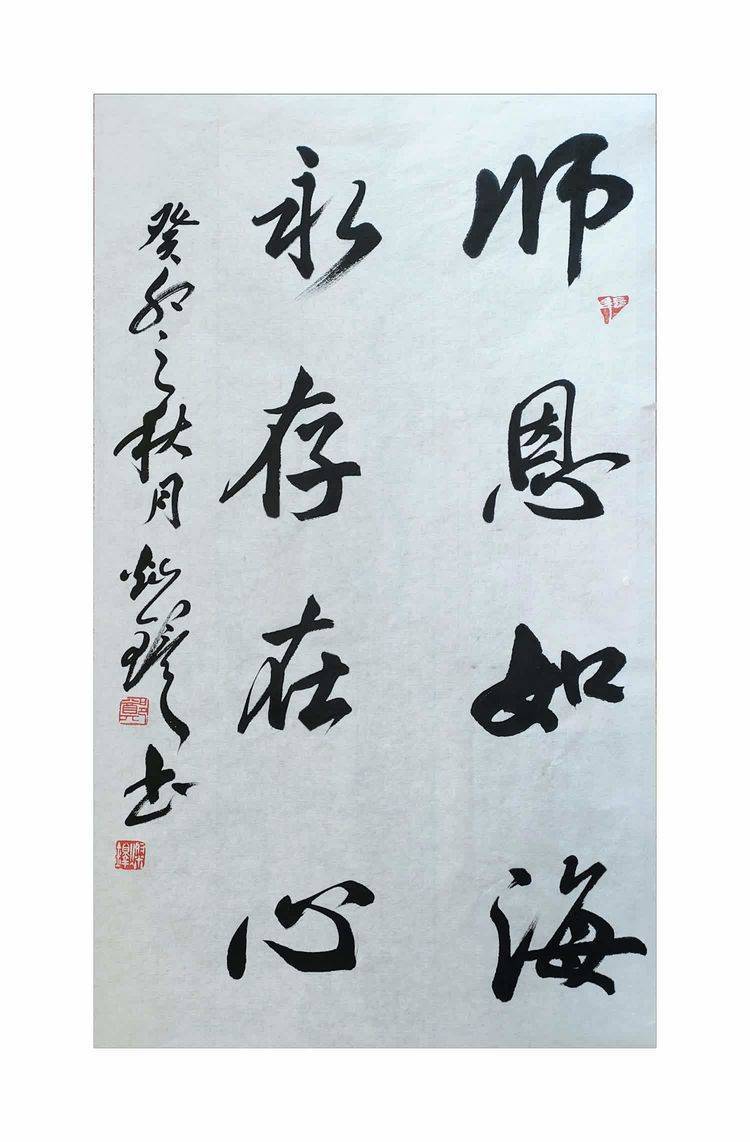 师恩如海
永存在心
癸卯之秋月灿璧书